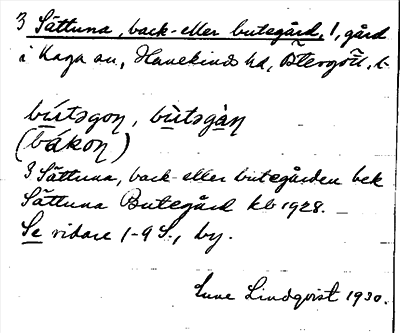 3 Sättuna, back- eller butegård, 1, gård
i Kaga sn, Hanekinds hd, Östergötl. l.
bútəgoɳ, bùtəgàɳ
(bákoɳ)
3 Sättuna, back- eller butegården bek
Sättuna Butegård kb 1928.
Se vidare 1-9 S., by.
Sune Lindqvist 1930.